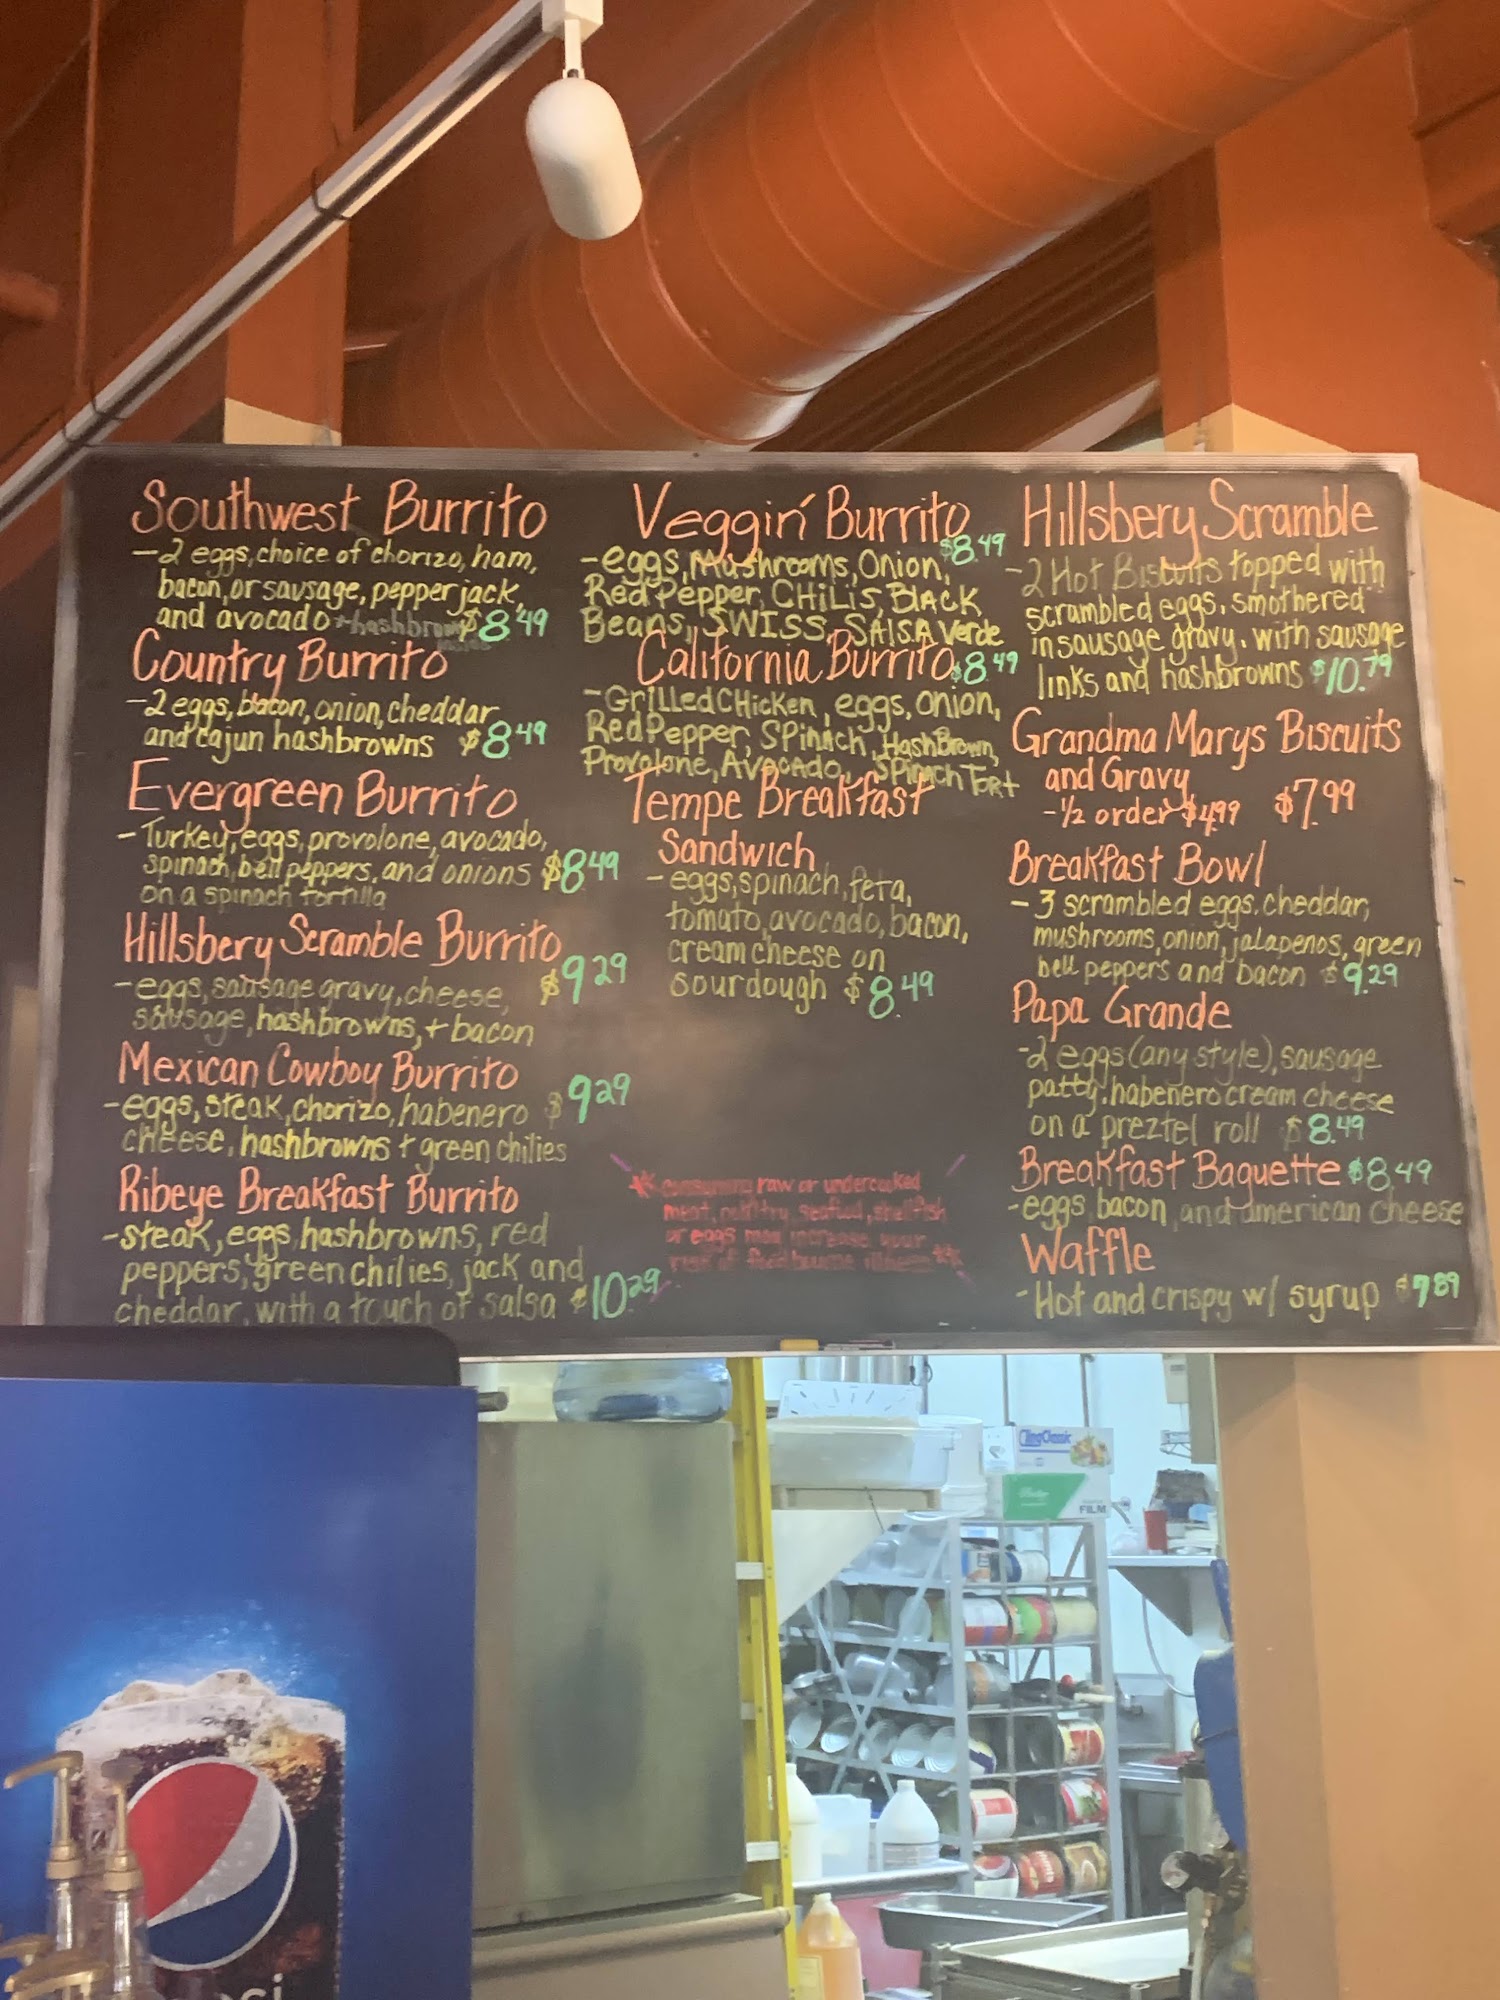 Southwest Burrito
-2 eggs, choice of chorizo, ham,
bacon, or sausage, pepper jack,
and avocado + hashbrowns $8.49
Country Burrito
-2 eggs, bacon, onion, cheddar
and cajun hashbrowns $8.49
Evergreen Burrito
-Turkey, eggs, provolone, avocado,
spinach, bell peppers, and onions $8.49
on a spinach tortilla
Hillsbery Scramble Burrito
-eggs, sausage gravy, cheese, $9.29
sausage, hashbrowns, + bacon
Mexican Cowboy Burrito
-eggs, steak, chorizo, habenero $9.29
cheese, hashbrowns + green chilies
Ribeye Breakfast Burrito
-steak, eggs, hashbrowns, red
peppers, green chilies, jack and
cheddar, with a touch of salsa $10.29
Veggin' Burrito
$8.49
-eggs, Mushrooms, Onion,
Red Pepper, CHiLiS, BlACK
Beans, SWISS, SAlSA Verde
California Burrito $8.49
-GrilledCHicken, eggs, onion,
Red Pepper, SPinach, HashBrown,
Provolone, Avocado, SPinach Tort
Tempe Breakfast
Sandwich
-eggs, spinach, feta,
tomato, avocado, bacon,
cream cheese on
sourdough $8.49
* consuming raw or undercooked
meat, poultry, seafood, shellfish
or eggs may increase your
risk of food bourne illness *
Hillsbery Scramble
-2 Hot Biscuits topped with
scrambled eggs, smothered
in sausage gravy, with sausage
links and hashbrowns $10.79
Grandma Marys Biscuits
and Gravy
-1/2 order $4.99 $7.99
Breakfast Bowl
-3 scrambled eggs, cheddar,
mushrooms, onion, jalapenos, green
bell peppers and bacon $9.29
Papa Grande
-2 eggs (any style), sausage
patty, habenero cream cheese
on a preztel roll $8.49
Breakfast Baguette $8.49
-eggs, bacon, and american cheese
Waffle
-Hot and crispy w/ syrup $7.89
ClingClassic
FILM